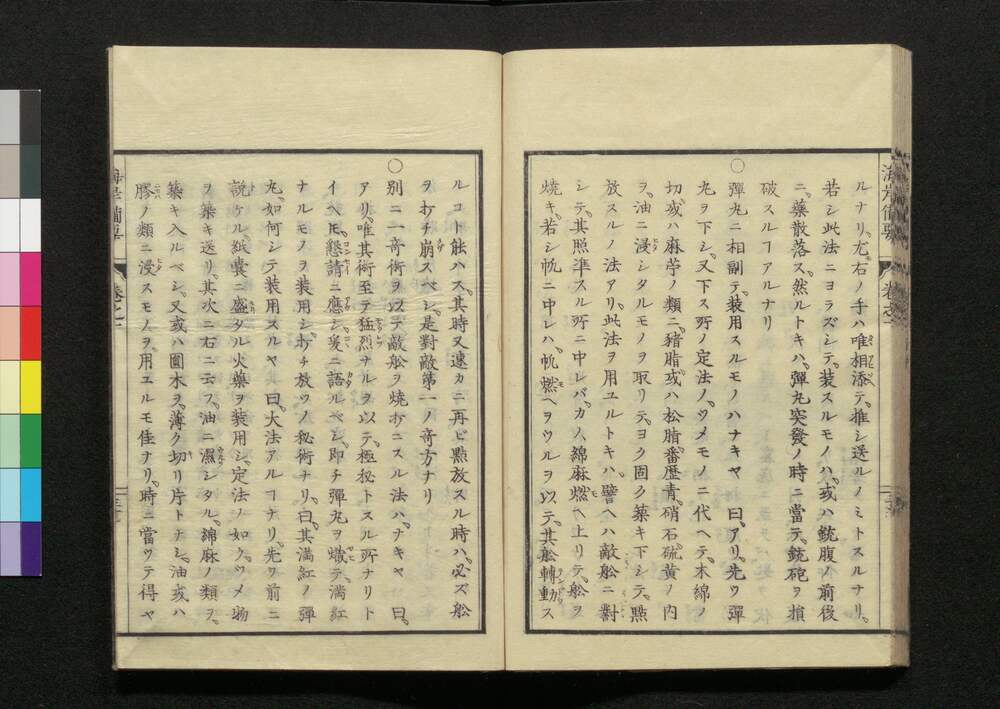 ルナリ。尤。右ノ手ハ唯相添テ。推シ送ルノミトスルナリ。
若シ此法ニヨラズシテ。装スルモノハ。或ハ銃腹ノ前後
ニ。藥散落ス。然ルトキハ。彈丸突發ノ時ニ當テ。銃砲ヲ損
破スルヿアルナリ
○彈丸ニ相副テ。装用スルモノハナキヤ 曰。アリ。先ツ彈
丸ヲ下シ。又下ス所ノ定法ノ。ツメモノニ代ヘテ。木綿ノ
切。或ハ麻苧ノ類ニ。豬脂。或ハ松脂。番瀝青。硝石。硫黄ノ内
ヲ。油ニ浸シタルモノヲ取リテ。ヨク固ク築キ下シテ。㸃
放スルノ法アリ。此法ヲ用ユルトキハ。譬ヘハ敵舩ニ對
シテ。其照準スル所ニ中レバ。カノ綿麻。燃ヘ上リテ。舩ヲ
焼キ。若シ帆ニ中レハ。帆燃ヘヲウルヲ以テ。其舩轉動ス
ルコト能ハス。其時又速カニ再ビ㸃放スル時ハ。必ズ舩
ヲ打チ崩スベシ。是對敵第一ノ奇方ナリ
○別ニ一奇術ヲ以テ。敵舩ヲ焼打ニスル法ハ。ナキヤ 曰。
アリ。唯其術至テ猛烈ナルヲ以テ。極秘トスル所ナリト
イヘ𪜈。懇請ニ應シ。爰ニ語ルベシ。即チ彈丸ヲ熾テ。満紅
ナルモノヲ装用シ。打チ放ツノ秘術ナリ。曰。其満紅ノ彈
丸。如何シテ装用スルヤ 曰。大法アルヿナリ。先ツ前ニ
説ケル。紙囊ニ盛タル火藥ヲ装用シ。定法ノ如ク。ツメ物
ヲ築キ送リ。其次ニ右ニ云フ。油ニ濕シタル。綿麻ノ類ヲ。
築キ入ルベシ。又或ハ圓木ヲ。薄ク切リ片トナシ。油或ハ
膠ノ類ニ浸スモノヲ。用ユルモ佳ナリ。時ニ當ツテ得ヤ